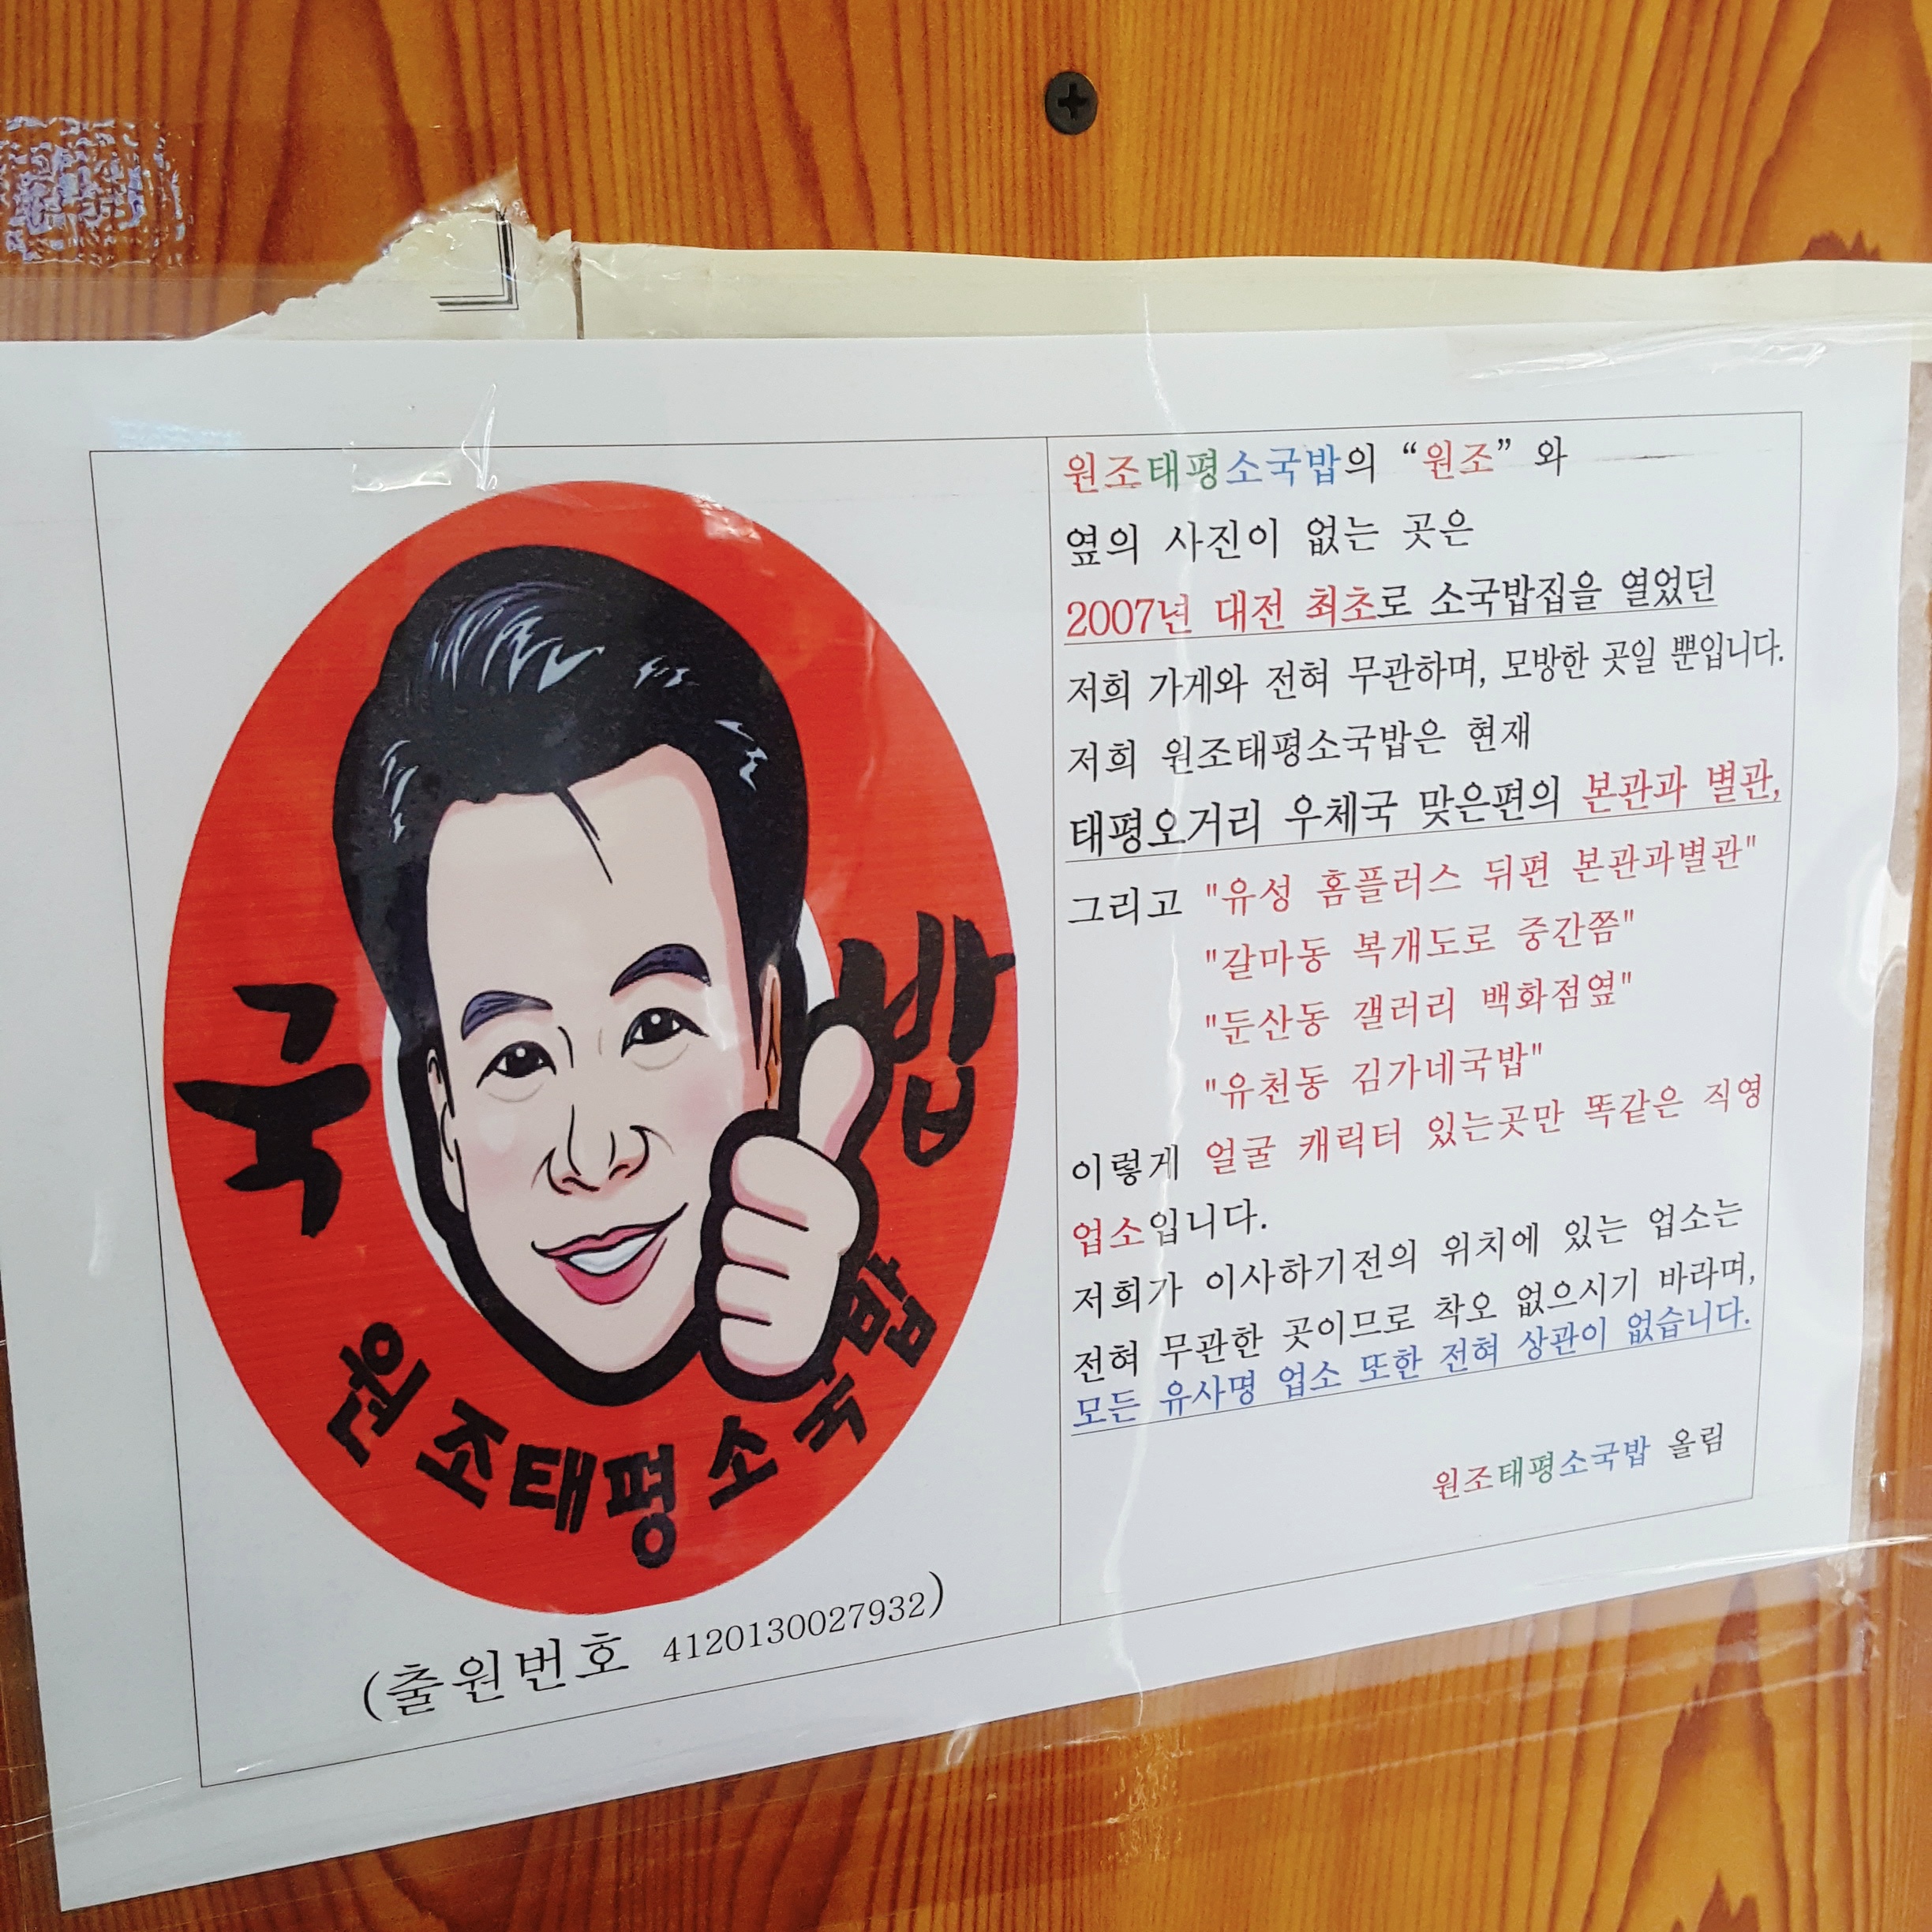 국밥
원조태평소국밥
(출원번호 4120130027932)
원조태평소국밥의 “원조” 와
옆의 사진이 없는 곳은
2007년 대전 최초로 소국밥집을 열었던
저희 가게와 전혀 무관하며, 모방한 곳일 뿐입니다.
저희 원조태평소국밥은 현재
태평오거리 우체국 맞은편의 본관과 별관,
그리고 "유성 홈플러스 뒤편 본관과별관"
"갈마동 복개도로 중간쯤"
"둔산동 갤러리 백화점옆"
"유천동 김가네국밥"
이렇게 얼굴 캐릭터 있는곳만 똑같은 직영
업소입니다.
저희가 이사하기전의 위치에 있는 업소는
전혀 무관한 곳이므로 착오 없으시기 바라며,
모든 유사명 업소 또한 전혀 상관이 없습니다.
원조태평소국밥 올림